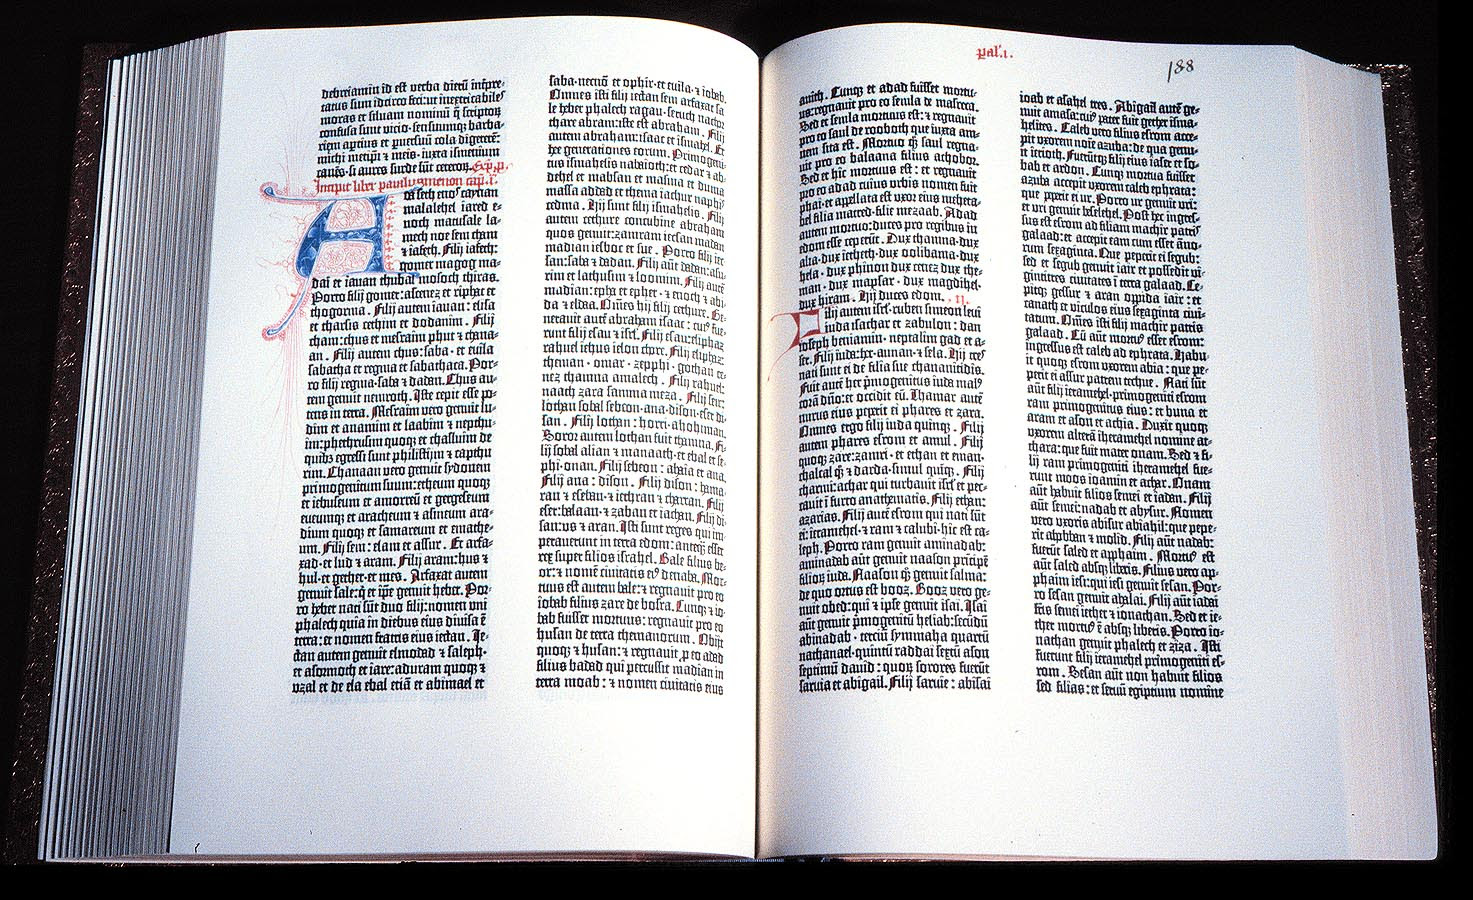 debreiamin id est verba dierū inter̄pre-
tatus sum idcirco feci: ut inextricabiles
moras et silvam nominū q̄ scriptorꝝ
confusa sunt vicio · sensuumqꝫ barba-
riem apertius et ꝑ versuū cola digererē:
michimetipī ⁊ meis · iuxta ismenium
canēs · si aures surde sūt ceterorꝝ. Explꝰ. ꝓ.
Incipit liber paralypomenon capꝰ. i.
Adam seth enos caynan
malalehel iared e-
noch matusale la-
mech noe sem cham
⁊ iafeth. Filij iafeth:
gomer magog ma-
dai et iavan thubal mosoch thiras.
Porro filij gomer: ascenez et riphat et
thogorma. Filij autem iauan: elisa
et tharsis cethim et dodanim. Filij
cham: chus et mesraim phut ⁊ chana-
an. Filij autem chus: saba · et euila
sabatha et regma et sabathaca. Por-
ro filij regma: saba ⁊ dadan. Chus au-
tem genuit nemroth. Iste cepit esse po-
tens in terra. Mesraim vero genuit lu-
dim et anamim et laabim ⁊ nepthu-
im: phethrusim quoqꝫ et chasluim de
quibꝫ egressi sunt philistijm ⁊ capthu
rim. Chanaan vero genuit sydonem
primogenitum suum: etheum quoqꝫ
et iebuseum et amorreū et gergeseum
eueumqꝫ et aracheum ⁊ asineum ara-
dium quoqꝫ et samareum et emathe-
um. Filij sem: elam et assur. Et arfa-
xad · et lud ⁊ aram. Filij aram: hus ⁊
hul · et gether · et mes. Arfaxat autem
genuit sale: q̄ et ip̄e genuit heber. Por-
ro heber nati sūt duo filij: nomen vni
phalech quia in diebus eius diuisa ē
terra: et nomen fratris eius iectan. Ie-
ctan autem genuit elmodad ⁊ saleph ·
et asermoth et iare: aduram quoqꝫ ⁊
vzal et decla ebal etiā et abimael et
saba · necnō et ophir · et euila · ⁊ iobab.
Omnes isti filij iectan sem arfaxat sa
le heber phalech ragau · seruch nachor
thare abram: iste est abraham. Filij
autem abraham: isaac et ismahel. Et
he generationes eorum. Primogeni-
tus ismahelis nabaioth: et cedar ⁊ ab-
dehel et mabsan et masma et duma
massa adad et thema iachur naphis
cedma. Hij sunt filij ismahelis. Filij
autem cethure concubine abraham
quos genuit: zamram iecsan madan
madian iesboc et sue. Porro filij iec
san: saba ⁊ dadan. Filij aūt dadan: asu-
rim et lathusim ⁊ loomim. Filij autē
madian: epha et epher · ⁊ enoch ⁊ abi-
da ⁊ eldaa. Om̄es hij filij cethure. Ge-
nerauit autē abraham isaac: cuiꝰ fue-
runt filij esau ⁊ isrł. Filij esau: eliphaz
rahuel iehus ielon chore. Filij eliphaz:
theman · omar · zepphi · gothan ce-
nez thamna amalech. Filij rahuel:
naath zara samma meza. Filij seir:
lothan sobal sebeon · ana · dison · eser di-
san. Filij lothan: horri · ahohman.
Soror autem lothan fuit thamna. Fi-
lij sobal alian ⁊ manaath · et ebal et se-
phi · onan. Filij sebeon: ahaia et ana.
Filij ana: dison. Filij dison: hama-
ran ⁊ eseban · ⁊ iethran ⁊ charran. Filij
eser: balaan · ⁊ zaban et iachan. Filij di-
san: us ⁊ aran. Isti sunt reges qui im-
perauerunt in terra edom: anteqꝫ esset
rex super filios israhel. Bale filius be-
or: ⁊ nomē ciuitatis eiꝰ denaba. Mor-
tuus est autem bale: ⁊ regnauit pro eo
iobab filius zare de bosra. Cunqꝫ ⁊ io-
bab fuisset mortuus: regnauit pro eo
husan de terra themanorum. Obijt
quoqꝫ ⁊ husan: ⁊ regnauit ꝓ eo adad
filius badad qui percussit madian in
terra moab: ⁊ nomen ciuitatis eius
pal'. i.
188
auith. Cunqꝫ et adad fuisset mortu-
us: regnauit pro eo semla de masreca.
Sed et semla mortuus est: ⁊ regnauit
pro eo saul de rooboth que iuxta am-
nem sita est. Mortuo qꝫ saul regna-
uit pro eo balaana filius achobor.
Sed et hic mortuus est: et regnauit
pro eo adad cuius vrbis nomen fuit
phai · et appellata est vxor eius meheta-
hel filia matred · filie mezaab. Adad
autem mortuo: duces pro regibus in
edom esse ceperūt. Dux thamna · dux
alia · dux ietheth · dux oolibama · dux
hela · dux phinon dux cenez dux the-
man · dux mapsar · dux magdihel ·
dux hiram. Hij duces edom. II.
Filij autem isrł: ruben simeon leui
iuda isachar et zabulon: dan
ioseph beniamin · neptalim gad et a-
ser. Filij iuda: her · aunan · ⁊ sela. Hij tres
nati sunt ei de filia sue chananitidis.
Fuit autē her p̄mogenitus iuda malꝰ
corā dn̄o: et occidit eū. Thamar autē
nurus eius peperit ei phares et zara.
Omnes ergo filij iuda quinqꝫ. Filij
autem phares esrom et amul. Filij
quoqꝫ zare: zamri · et ethan et eman ·
chalcal qꝫ ⁊ darda · simul quīqꝫ. Filij
charmi: achar qui turbauit isrł et pec-
cauit ī furto anathematis. Filij ethan:
azarias. Filij autē esrom qui nati sūt
ei: ieramehel · ⁊ ram ⁊ calubi · hic est ca-
leph. Porro ram genuit aminadab:
aminadab aūt genuit naason prīcipē
filiorꝝ iuda. Naason qꝫ genuit salma:
de quo ortus est booz. Booz vero ge-
nuit obed: qui ⁊ ipse genuit isai. Isai
aūt genuit p̄mogenitū heliab: secūdū
abinadab · terciū symmaha quartū
nathanael · quintū raddai sextū asom
septimū dauid: quorꝝ sorores fuerūt
saruia et abigail. Filij saruie: abisai
ioab et asahel tres. Abigail autē ge-
nuit amasa: cuiꝰ pater fuit gether isma-
helites. Caleb vero filius esrom acce-
pit vxorem noīe azuba: de qua genu-
it ierioth. Fueruntqꝫ filij eius iaser et so-
bab et ardon. Cunqꝫ mortua fuisset
azuba accepit vxorem caleb ephrata:
que peperit ei ur. Porro ur genuit uri:
et uri genuit beselehel. Post hec ingres-
sus est esrom ad filiam machir patris
galaad: et accepit eam cum esset āno-
rum sexaginta. Que peperit ei segub:
sed et segub genuit iair · et possedit vi-
gintitres ciuitates ī terra galaad. Ce-
pitqꝫ gessur ⁊ aran oppida iair: et
canath et viculos eius sexaginta ciui-
tatum. Om̄es isti filij machir patris
galaad. Cū aūt mortuꝰ esset esrom:
ingressus est caleb ad ephrata. Habu-
it quoqꝫ esrom vxorem abia: que pe-
perit ei assur patrem techue. Nati sūt
aūt filij ieramehel · primogeniti esrom
ram primogenitus eius: et buna et
aram et asom et achia. Duxit quoqꝫ
vxorem alterā iheramehel nomine at-
thara: que fuit mater onam. Sed ⁊ fi-
lij ram primogeniti iheramehel fue-
runt moos iamim et achar. Onam
aūt habuit filios semei et iadan. Filij
aūt semei: nadab et abysur. Nomen
vero vxoris abisur abiahil: que pepe-
rit ahobban ⁊ molid. Filij aūt nadab:
fuerūt saled et apphaim. Mortuꝰ est
aūt saled absqꝫ liberis. Filius vero ap-
phaim iesi: qui iesi genuit sesan. Por-
ro sesan genuit ahalai. Filij aūt iadai
fr̄is semei iether ⁊ ionathan. Sed et ie-
ther mortuꝰ ē absqꝫ liberis. Porro io-
nathan genuit phalech et ziza. Isti
fuerunt filij ieramehel primogeniti es-
rom. Sesan aūt non habuit filios
sed filias: et seruū egiptium nomine